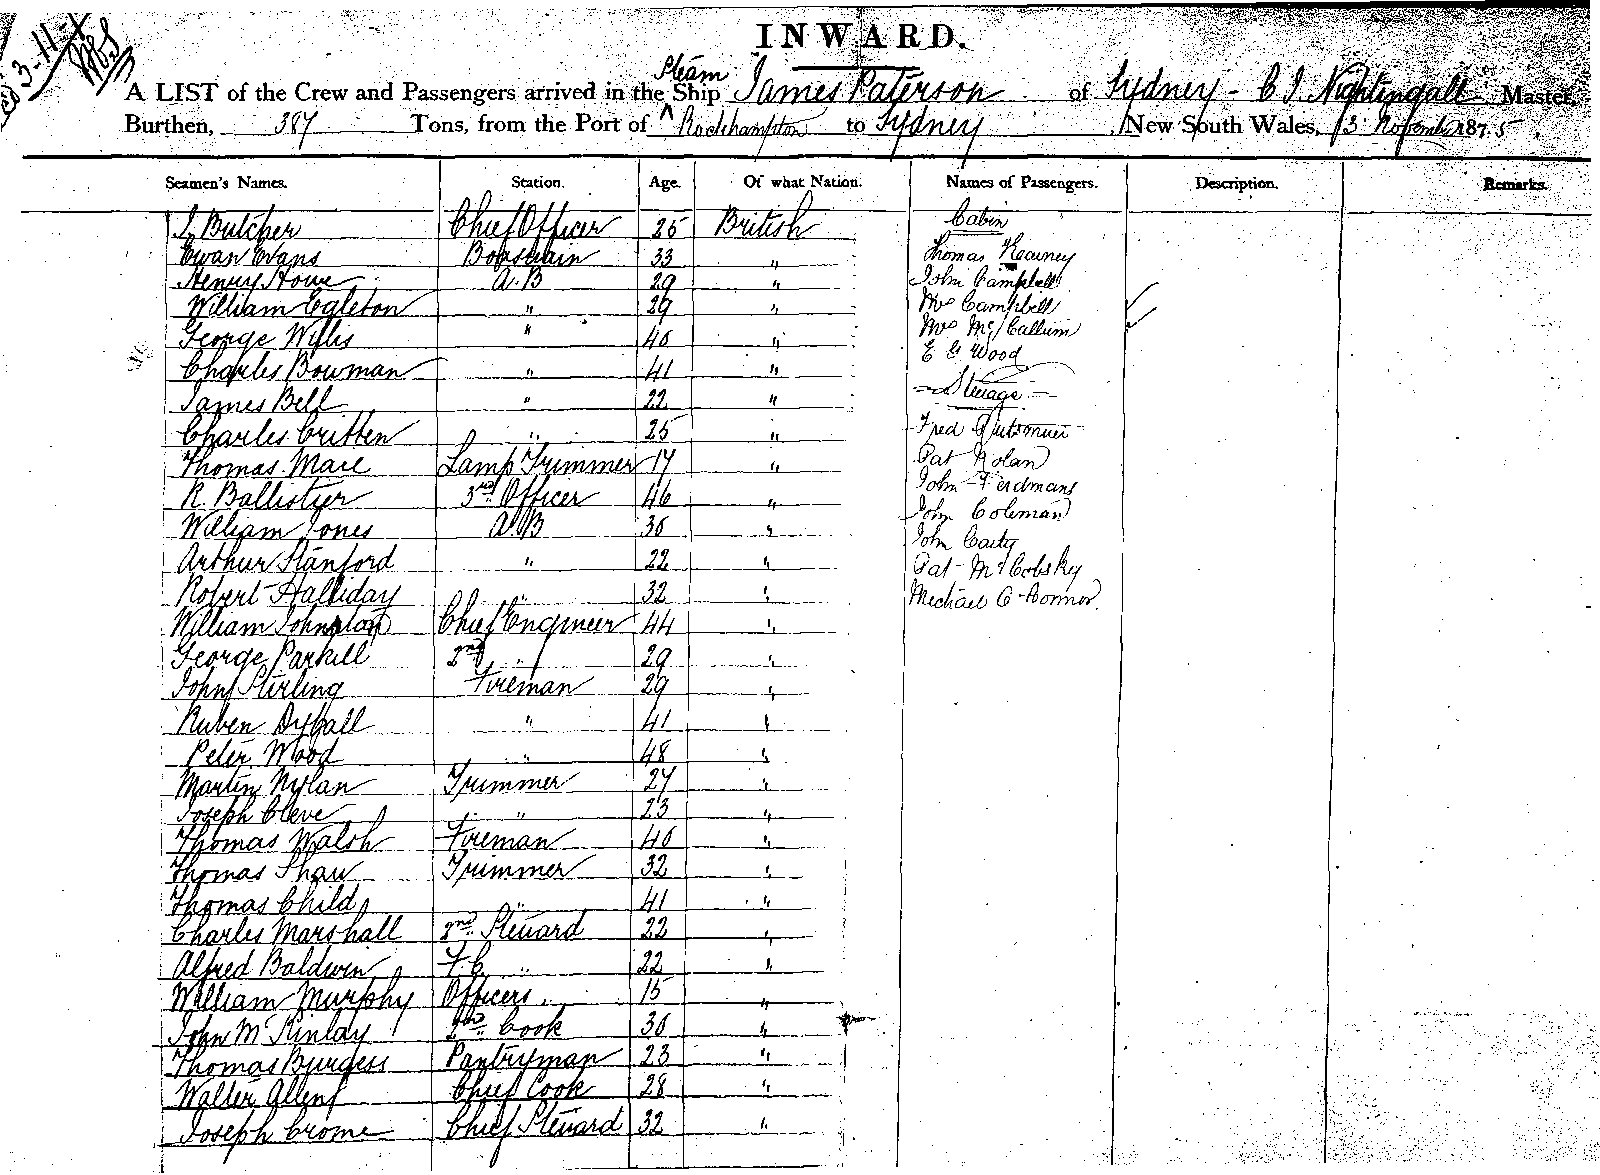 3-11-
INWARD.
A LIST of the Crew and Passengers arrived in the Steam Ship James Paterson of Sydney - C J Nightingall Master,
Burthen, 387 Tons, from the Port of Rockhampton to Sydney New South Wales, 3 November 1875.
Seamen's Names. Station. Age. Of what Nation. Names of Passengers. Description. Remarks.
Butcher Chief Officer 25 British Cabin
Ewan Evans Boatswain 33 " Thomas Kearney
Henry Howe A.B 29 " John Campbell
William Egleton " 29 " Mrs Campbell
George Wills " 40 " Mrs McCallum
E G Wood
Charles Bowman " 41 "
James Bell " 22 " Steerage
Charles Critten " 25 " Fred
Thomas Mare Lamp Trimmer 17 " Pat Nolan
R. Ballister 3rd Officer 46 " John Ferdmans
William Jones A.B 30 " John Coleman
John Casty
Arthur Stanford " 22 " Pat
Robert Halliday " 32 " Michael O'Connor
William Johnston Chief Engineer 44 "
George Parkill 2nd " 29 "
John Stirling Fireman 29 "
Ruben Dyball " 41 "
Peter Wood " 48 "
Martin Nylan Trimmer 27 "
Joseph Cleve " 23 "
Thomas Walsh Fireman 40 "
Thomas Shaw Trimmer 32 "
Thomas Child " 41 "
Charles Marshall 2nd Steuard 22 "
Alfred Baldwin F.C. " 22 "
William Murphy Officers " 15 "
John McKinlay 2nd Cook 30 "
Thomas Burgess Pantryman 23 "
Walter Allen Chief Cook 28 "
Joseph Crome Chief Steuard 32 "